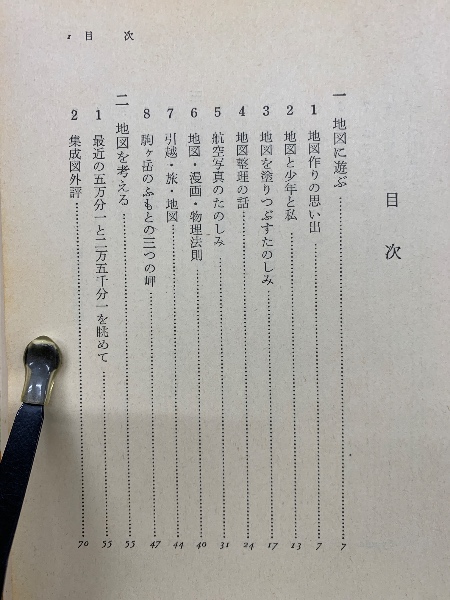 1 目次
目次
一 地図に遊ぶ 7
1 地図作りの思い出 7
2 地図と少年と私 13
3 地図を塗りつぶすたのしみ 17
4 地図整理の話 24
5 航空写真のたのしみ 31
6 地図・漫画・物理法則 40
7 引越・旅・地図 44
8 駒ヶ岳のふもとの三つの岬 47
二 地図を考える 55
1 最近の五万分一と二万五千分一を眺めて 55
2 集成図外評 70